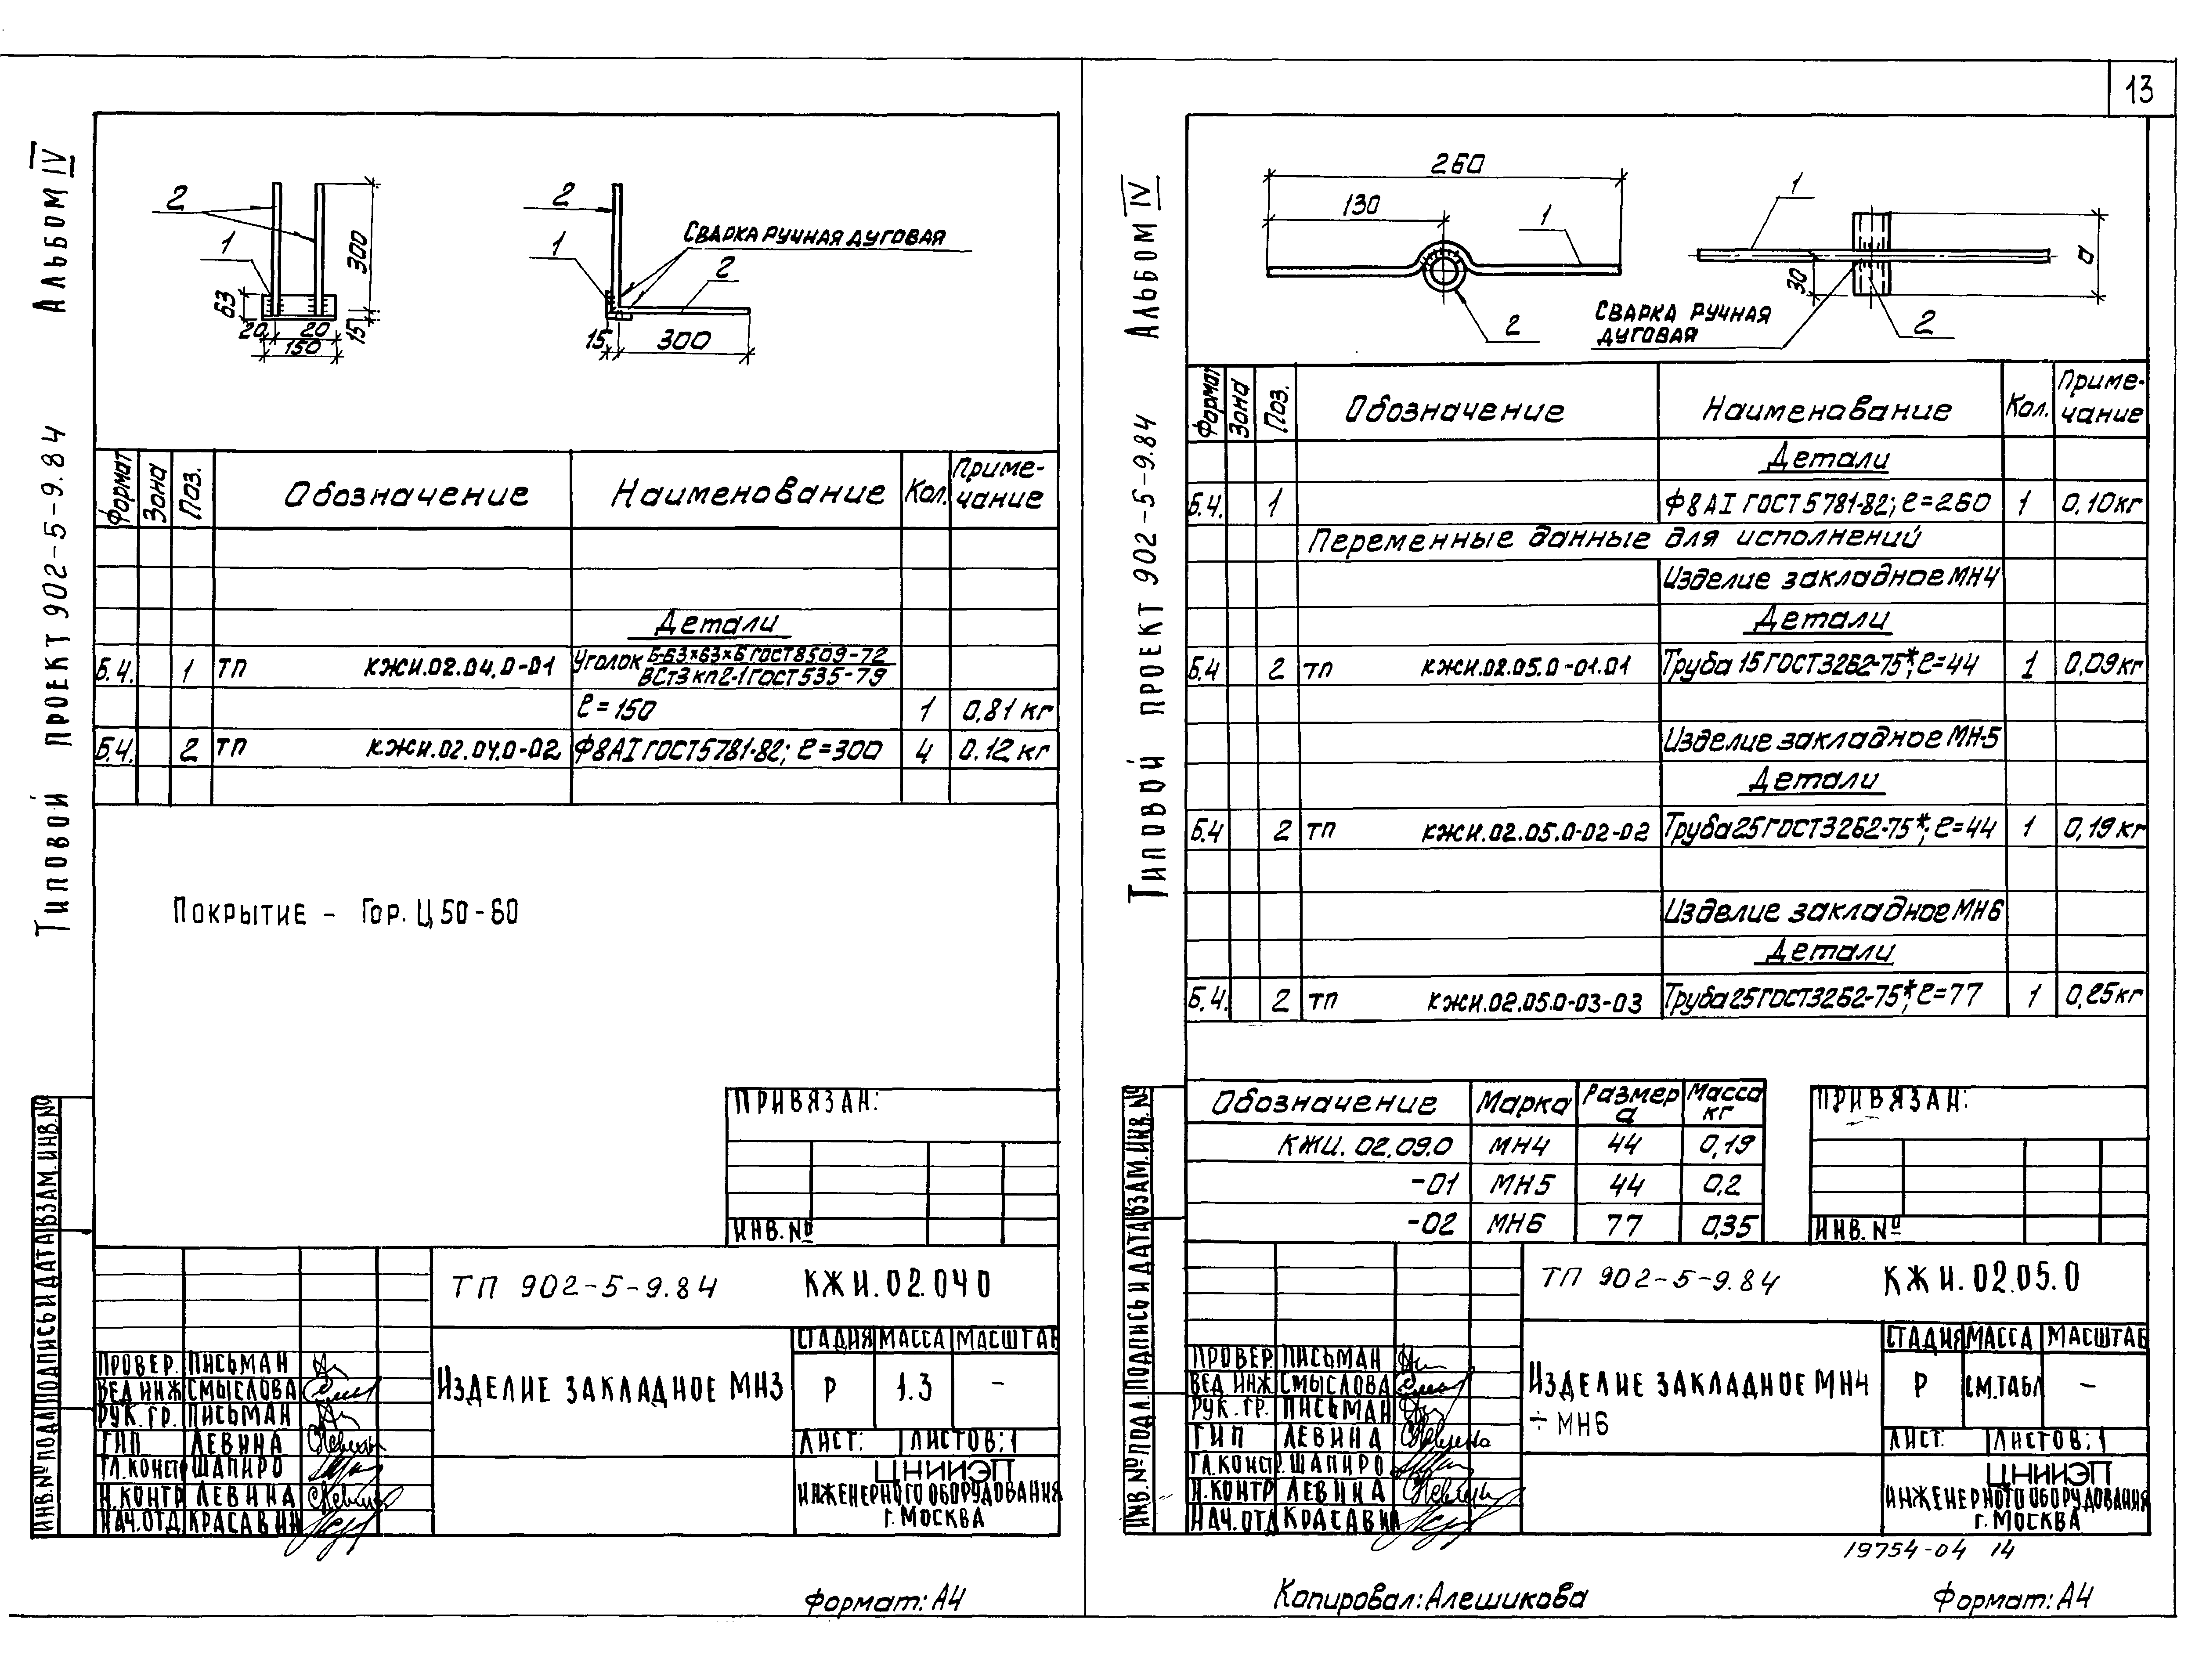 13
Альбом IV
Типовой проект 902-5-9.84
2
1
300
63
20
20
150
15
2
1
Сварка ручная дуговая
2
15
300
Формат
Зона
Поз.
Обозначение
Наименование
Кол.
Приме-
чание
Детали
Б.4. 1 ТП КЖИ.02.04.0-01 Уголок Б-63×63×6 ГОСТ 8509-72
ВСт3кп2-1 ГОСТ 535-79
ℓ=150 1 0,81 кг
Б.4. 2 ТП КЖИ.02.04.0-02 Ф8АI ГОСТ 5781-82; ℓ=300 4 0.12 кг
Покрытие - Гор. Ц50-60
Привязан:
Инв. №
ТП 902-5-9.84 КЖИ.02.040
Изделие закладное МН3
Стадия Масса Масштаб
Р 1.3 -
Лист: Листов: 1
ЦНИИЭП
инженерного оборудования
г. Москва
Провер. Письман
Вед инж Смыслова
Рук. гр. Письман
ГИП Левина
Гл.констр Шапиро
Н.контр Левина
Нач.отд Красавин
Инв.№ подл Подпись и дата Взам. инв. №
Формат: А4
Альбом IV
Типовой проект 902-5-9.84
260
130
1
2
1
а
30
Сварка ручная
дуговая
2
Формат
Зона
Поз.
Обозначение
Наименование
Кол.
Приме-
чание
Детали
Б.4. 1 Ф8АI ГОСТ 5781-82; ℓ=260 1 0,10кг
Переменные данные для исполнений
Изделие закладное МН4
Детали
Б.4 2 ТП КЖИ.02.05.0-01.01 Труба 15 ГОСТ 3262-75*; ℓ=44 1 0,09кг
Изделие закладное МН-5
Детали
Б.4 2 ТП КЖИ.02.05.0-02-02 Труба 25 ГОСТ 3262-75*; ℓ=44 1 0,19кг
Изделие закладное МН6
Детали
Б.4. 2 ТП КЖИ.02.05.0-03-03 Труба 25 ГОСТ 3262-75*; ℓ=77 1 0,25кг
Обозначение Марка Размер а Масса кг
КЖИ. 02.09.0 МН4 44 0,19
-01 МН5 44 0,2
-02 МН6 77 0,35
Привязан:
Инв. №
ТП 902-5-9.84 КЖИ.02.05.0
Изделие закладное МН4
÷ МН6
Стадия Масса Масштаб
Р см.табл -
Лист. Листов: 1
ЦНИИЭП
инженерного оборудования
г. Москва
Провер. Письман
Вед инж. Смыслова
Рук. гр. Письман
ГИП Левина
Гл.констр. Шапиро
Н.контр Левина
Нач.отд Красавин
Инв.№ подл. Подпись и дата Взам. инв. №
19754-04 14
Копировал: Алешикова
Формат: А4